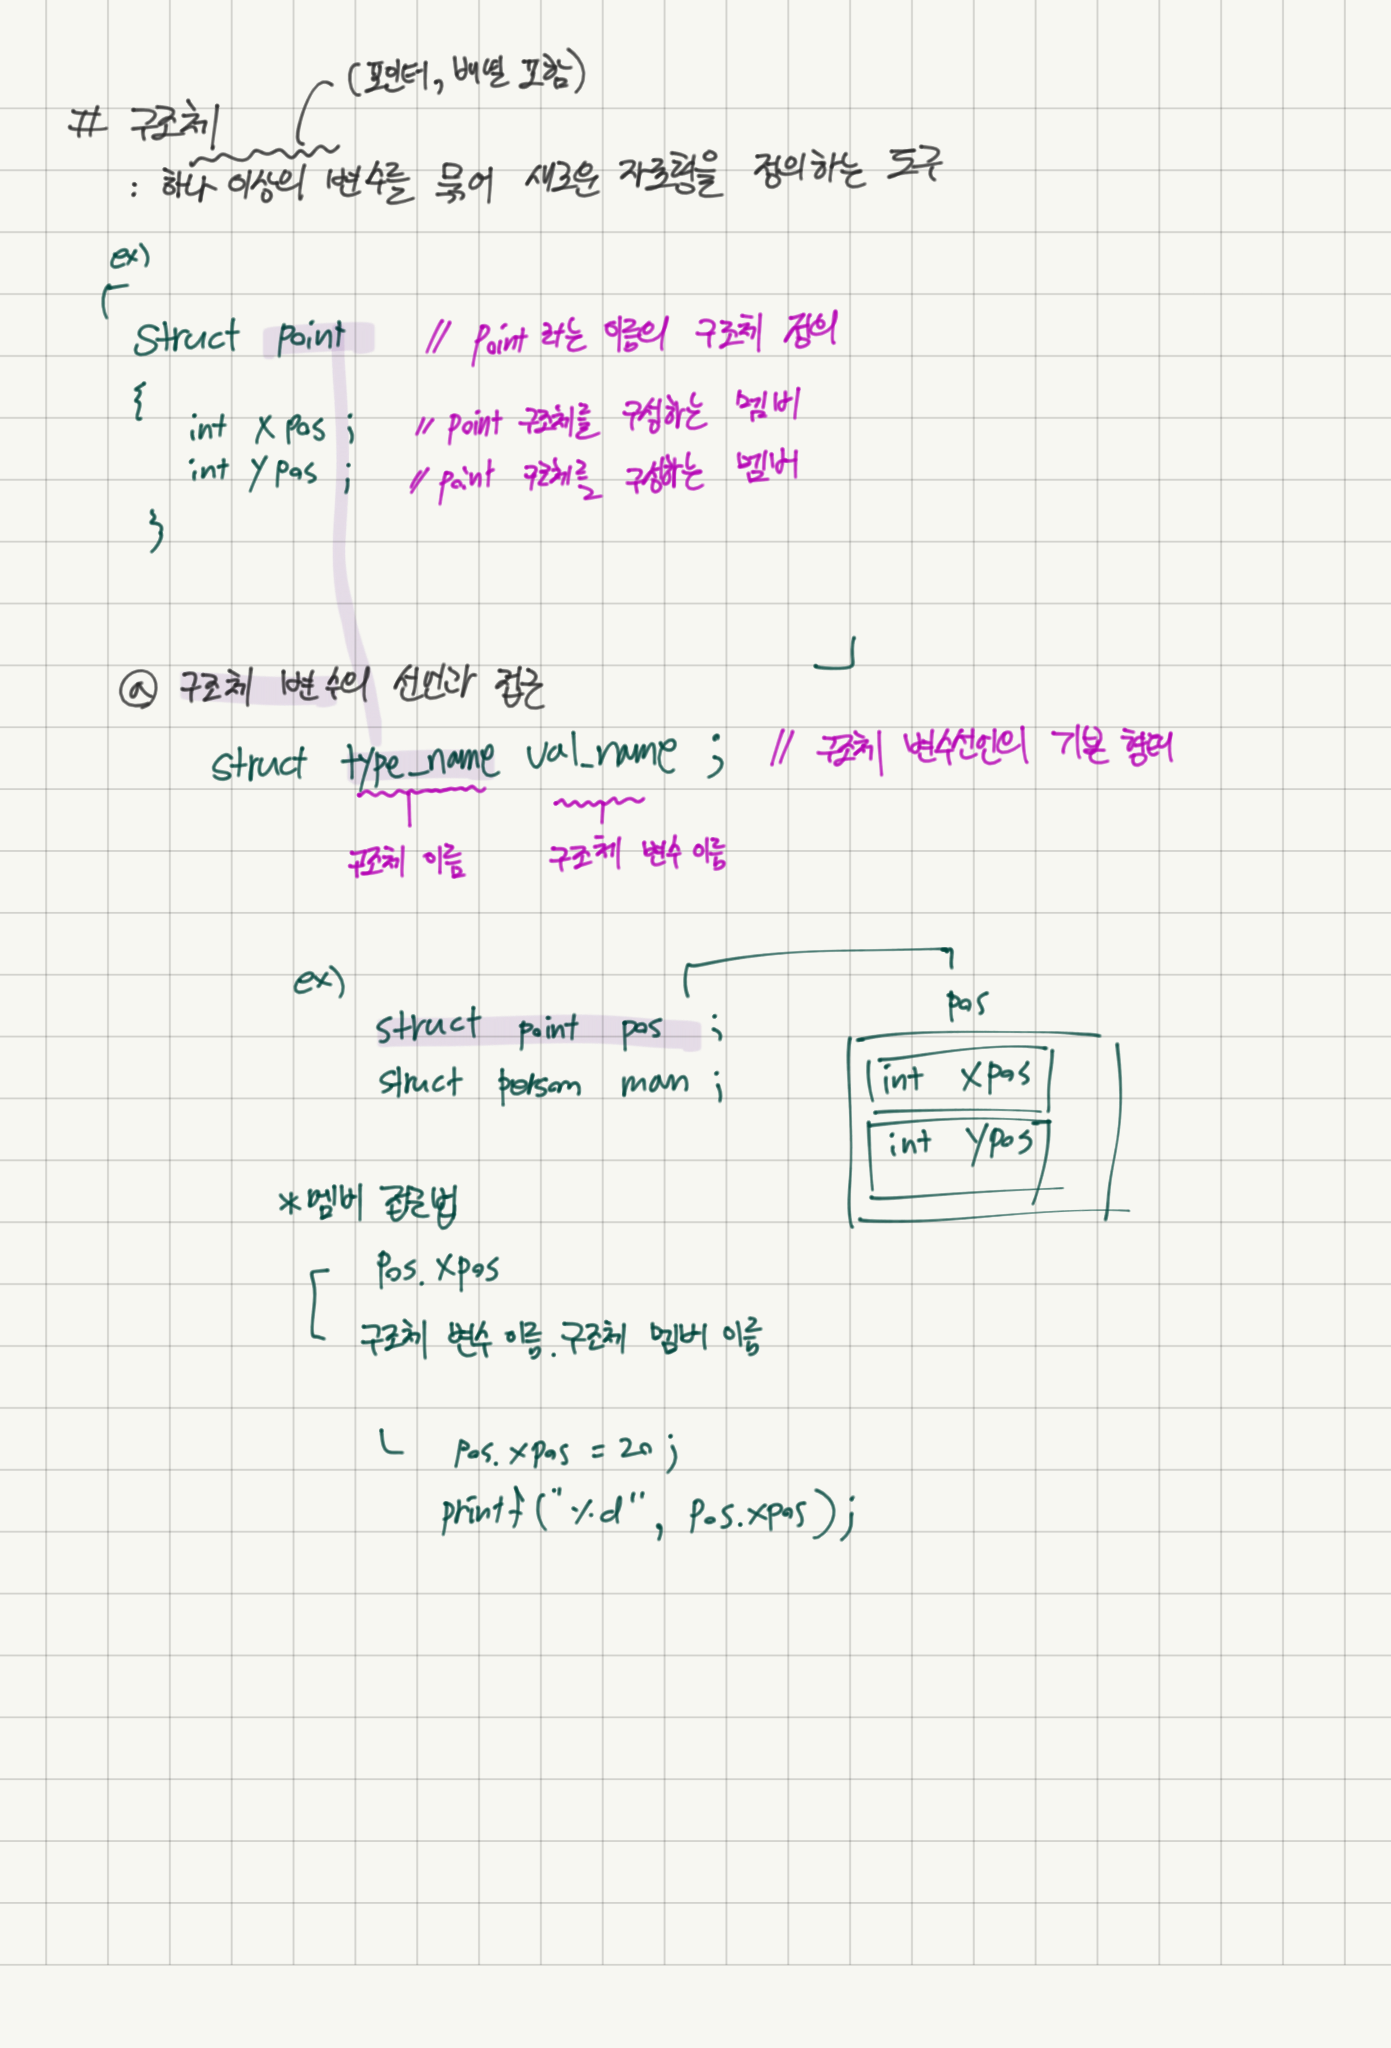 (포인터, 배열 포함)
# 구조체
: 하나 이상의 변수를 묶어 새로운 자료형을 정의하는 도구
ex)
struct point // point 라는 이름의 구조체 정의
{
int xpos ; // point 구조체를 구성하는 멤버
int ypos ; // point 구조체를 구성하는 멤버
}
ⓐ 구조체 변수의 선언과 접근
struct type_name val_name ; // 구조체 변수선언의 기본 형태
구조체 이름 구조체 변수 이름
ex)
pos
struct point pos ;
struct person man ;
int xpos
int ypos
*멤버 접근법
pos.xpos
구조체 변수 이름.구조체 멤버 이름
pos.xpos = 20 ;
printf("%d", pos.xpos);